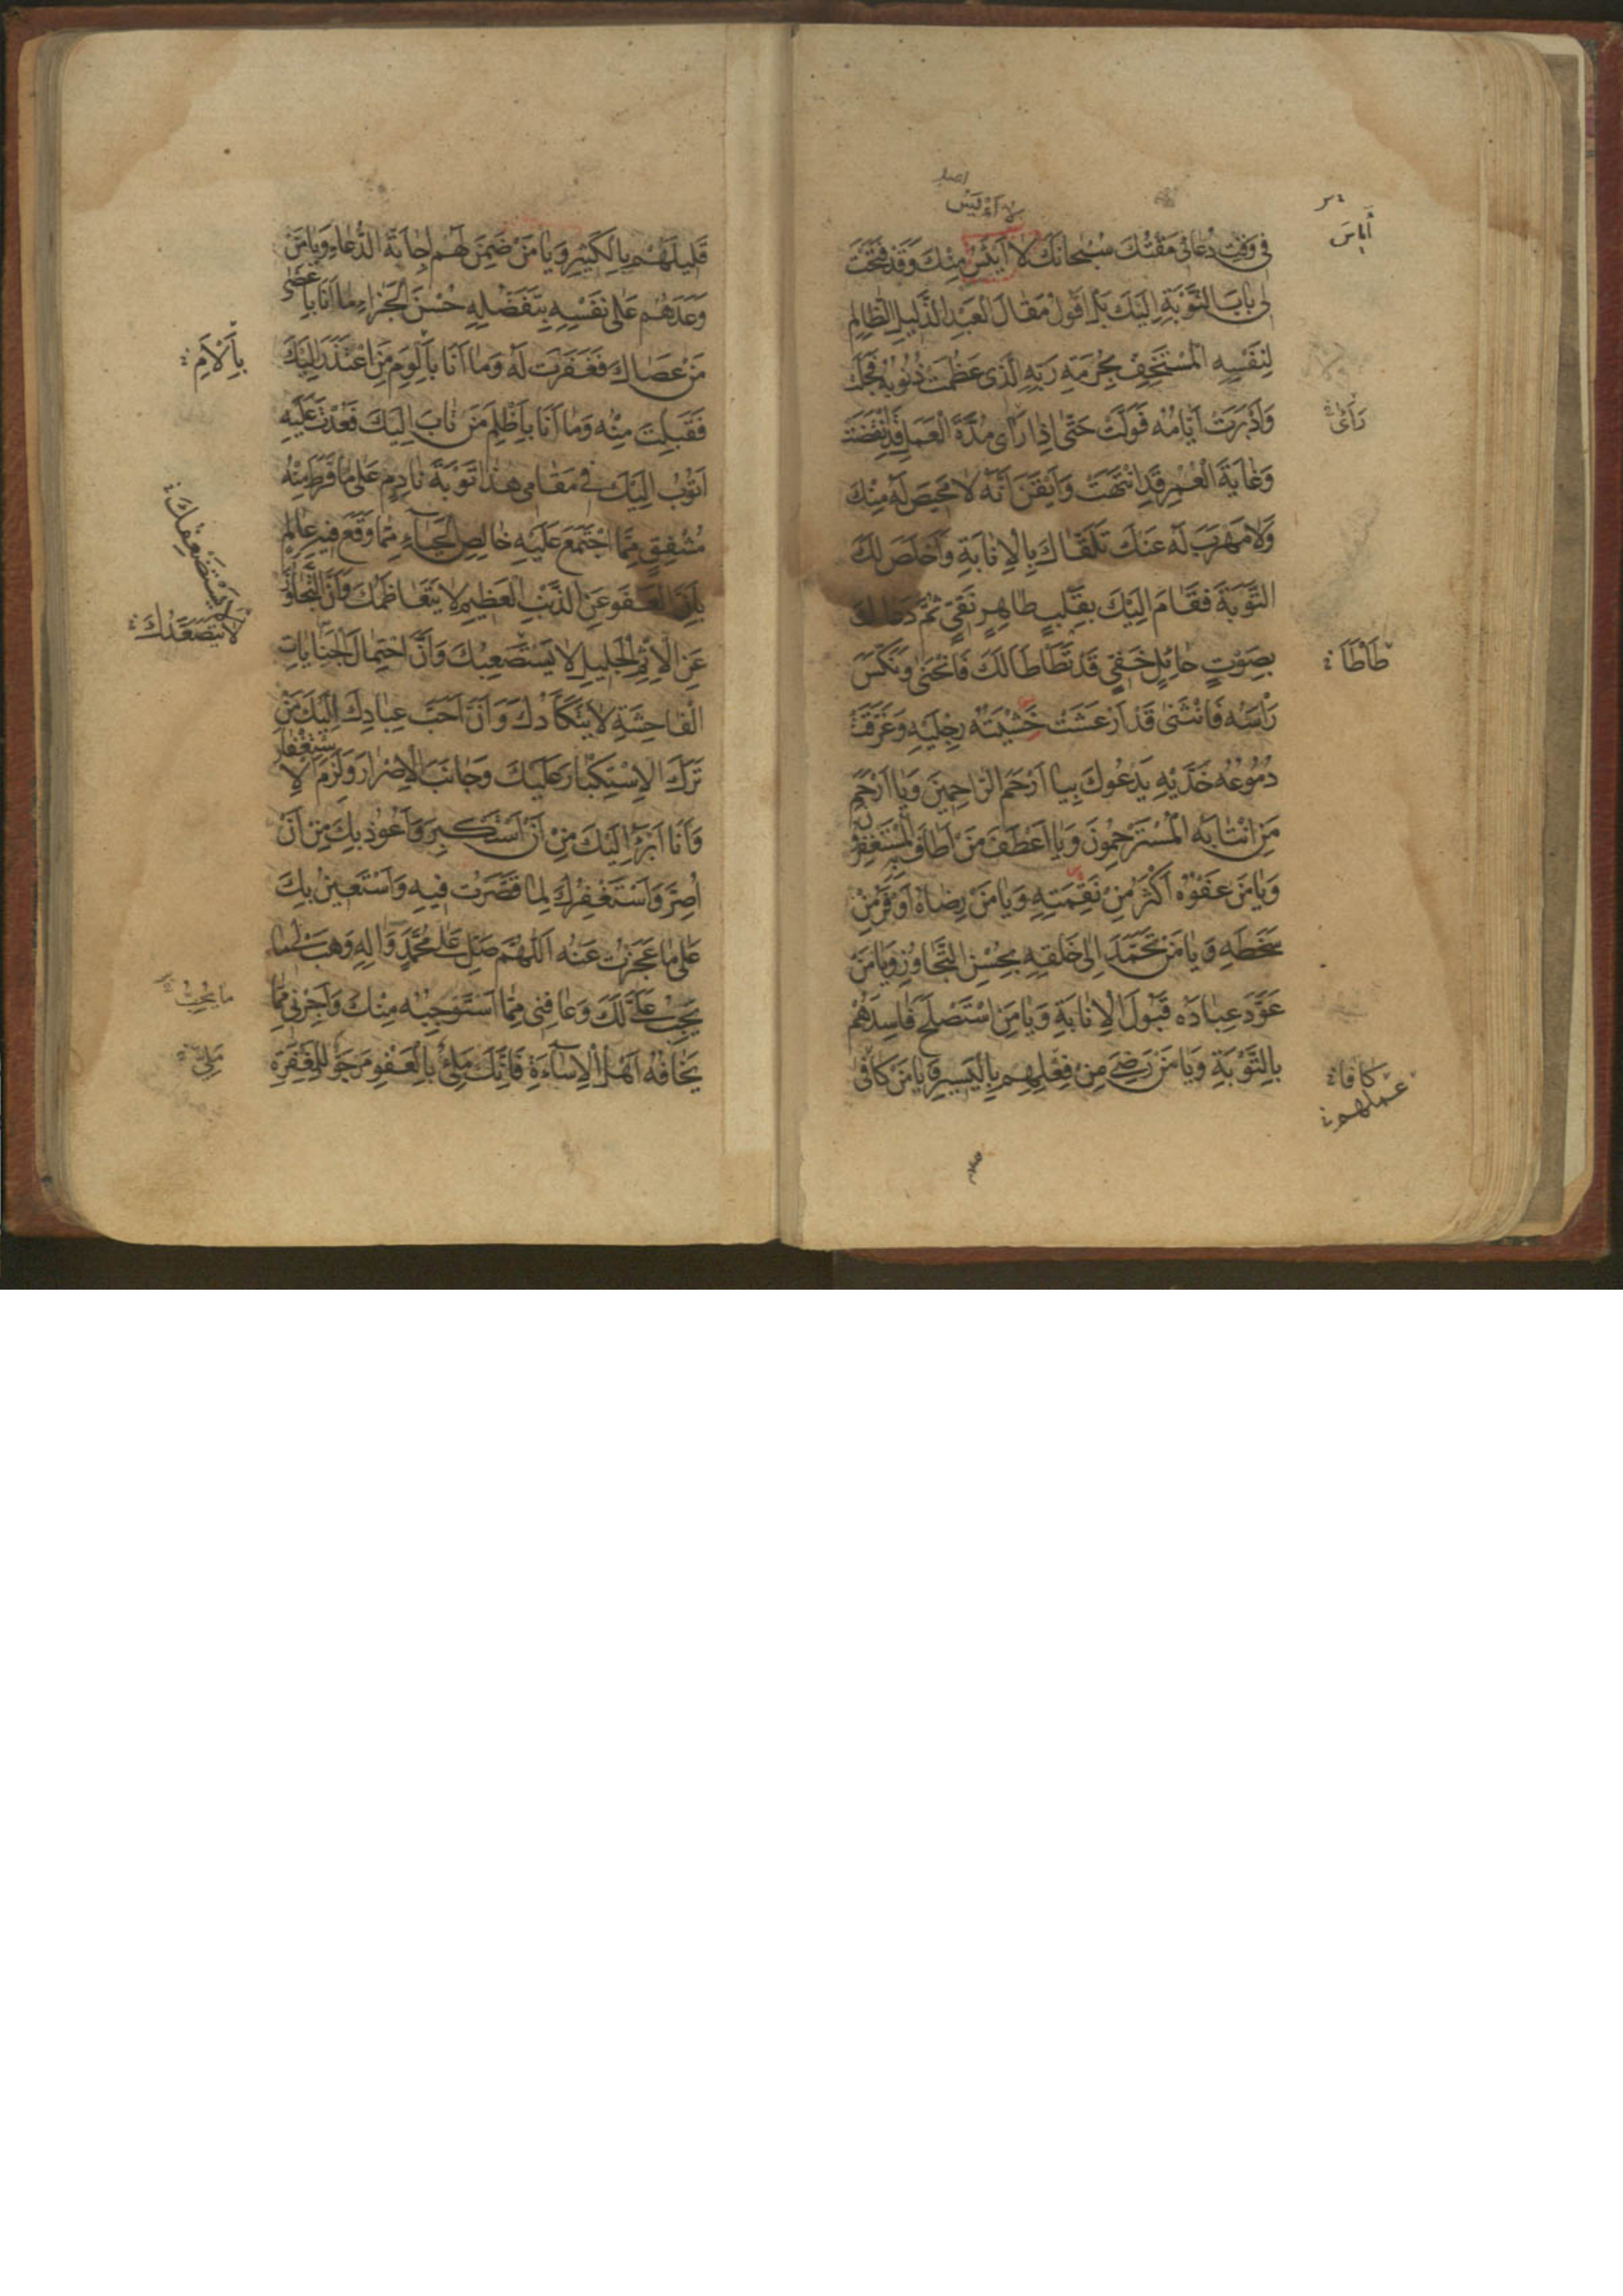 فِي وَقْتِ دُعَائِي مَقْتُكَ سُبْحَانَكَ لَا أَيْئَسُ مِنْكَ وَقَدْ فَتَحْتَ
لِي بَابَ التَّوْبَةِ إِلَيْكَ بَلْ أَقُولُ مَقَالَ الْعَبْدِ الذَّلِيلِ الظَّالِمِ
لِنَفْسِهِ الْمُسْتَخِفِّ بِحُرْمَةِ رَبِّهِ الَّذِي عَظُمَتْ ذُنُوبُهُ فَجَلَّتْ
وَأَدْبَرَتْ أَيَّامُهُ فَوَلَّتْ حَتَّى إِذَا رَأَى مُدَّةَ الْعَمَلِ قَدِ انْقَضَتْ
وَغَايَةَ الْعُمُرِ قَدِ انْتَهَتْ وَأَيْقَنَ أَنَّهُ لَا مَحِيصَ لَهُ مِنْكَ
وَلَا مَهْرَبَ لَهُ عَنْكَ تَلَقَّاكَ بِالْإِنَابَةِ وَأَخْلَصَ لَكَ
التَّوْبَةَ فَقَامَ إِلَيْكَ بِقَلْبٍ طَاهِرٍ نَقِيٍّ ثُمَّ دَعَاكَ
بِصَوْتٍ حَائِلٍ خَفِيٍّ قَدْ تَطَاطَا لَكَ فَانْحَنَى وَنَكَّسَ
رَأْسَهُ فَانْثَنَى قَدْ أَرْعَشَتْ خَشْيَتُهُ رِجْلَيْهِ وَغَرَّقَتْ
دُمُوعُهُ خَدَّيْهِ يَدْعُوكَ بِيَا أَرْحَمَ الرَّاحِمِينَ وَيَا أَرْحَمَ
مَنِ انْتَابَهُ الْمُسْتَرْحِمُونَ وَيَا أَعْطَفَ مَنْ أَطَافَ بِهِ الْمُسْتَغْفِرُونَ
وَيَا مَنْ عَفْوُهُ أَكْثَرُ مِنْ نَقِمَتِهِ وَيَا مَنْ رِضَاهُ أَوْفَرُ مِنْ
سَخَطِهِ وَيَا مَنْ تَحَمَّدَ إِلَى خَلْقِهِ بِحُسْنِ التَّجَاوُزِ وَيَا مَنْ
عَوَّدَ عِبَادَهُ قَبُولَ الْإِنَابَةِ وَيَا مَنِ اسْتَصْلَحَ فَاسِدَهُمْ
بِالتَّوْبَةِ وَيَا مَنْ رَضِيَ مِنْ فِعْلِهِمْ بِالْيَسِيرِ وَيَا مَنْ كَافَى
رَأَى
طَأْطَأَ
كَافَاَ
عَمَلِهِمْ
قَلِيلَهُمْ بِالْكَثِيرِ وَيَا مَنْ ضَمِنَ لَهُمْ إِجَابَةَ الدُّعَاءِ وَيَا مَنْ
وَعَدَهُمْ عَلَى نَفْسِهِ بِتَفَضُّلِهِ حُسْنَ الْجَزَاءِ مَا أَنَا بِأَعْصَى
مَنْ عَصَاكَ فَغَفَرْتَ لَهُ وَمَا أَنَا بِأَلْوَمِ مَنِ اعْتَذَرَ إِلَيْكَ
فَقَبِلْتَ مِنْهُ وَمَا أَنَا بِأَظْلَمِ مَنْ تَابَ إِلَيْكَ فَعُدْتَ عَلَيْهِ
أَتُوبُ إِلَيْكَ فِي مَقَامِي هَذَا تَوْبَةَ نَادِمٍ عَلَى مَا فَرَطَ مِنْهُ
مُشْفِقٍ مِمَّا اجْتَمَعَ عَلَيْهِ خَالِصِ الْحَيَاءِ مِمَّا وَقَعَ فِيهِ عَالِمٍ
بِأَنَّ الْعَفْوَ عَنِ الذَّنْبِ الْعَظِيمِ لَا يَتَعَاظَمُكَ وَأَنَّ التَّجَاوُزَ
عَنِ الْإِثْمِ الْجَلِيلِ لَا يَسْتَصْعِبُكَ وَأَنَّ احْتِمَالَ الْجِنَايَاتِ
الْفَاحِشَةِ لَا يَتَكَأَّدُكَ وَأَنَّ أَحَبَّ عِبَادِكَ إِلَيْكَ مَنْ
تَرَكَ الْاِسْتِكْبَارَ عَلَيْكَ وَجَانَبَ الْإِصْرَارَ وَلَزِمَ الْاِسْتِغْفَارَ
وَأَنَا أَبْرَأُ إِلَيْكَ مِنْ أَنْ أَسْتَكْبِرَ وَأَعُوذُ بِكَ مِنْ أَنْ
أُصِرَّ وَأَسْتَغْفِرُكَ لِمَا قَصَّرْتُ فِيهِ وَأَسْتَعِينُ بِكَ
عَلَى مَا عَجَزْتُ عَنْهُ اللَّهُمَّ صَلِّ عَلَى مُحَمَّدٍ وَآلِهِ وَهَبْ لِي مَا
يَجِبُ عَلَيَّ لَكَ وَعَافِنِي مِمَّا أَسْتَوْجِبُهُ مِنْكَ وَأَجِرْنِي مِمَّا
يَخَافُهُ أَهْلُ الْإِسَاءَةِ فَإِنَّكَ مَلِيءٌ بِالْعَفْوِ مَرْجُوٌّ لِلْمَغْفِرَةِ
بِأَلْأَمِ
لَا يَتَصَعَّدُكَ
مَا يَجِبُ
مَلِيّ